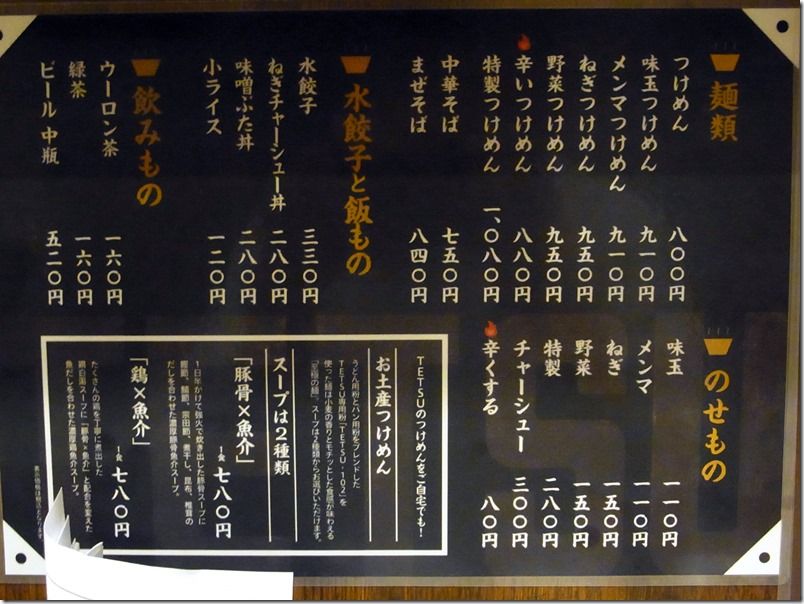 麺類
つけめん 八〇〇円
味玉つけめん 九一〇円
メンマつけめん 九一〇円
ねぎつけめん 九五〇円
野菜つけめん 九五〇円
辛いつけめん 八八〇円
特製つけめん 一、〇八〇円
中華そば 七五〇円
まぜそば 八四〇円
水餃子と飯もの
水餃子 三三〇円
ねぎチャーシュー丼 二八〇円
味噌ぶた丼 二八〇円
小ライス 一二〇円
飲みもの
ウーロン茶 一六〇円
緑茶 一六〇円
ビール 中瓶 五二〇円
のせもの
味玉 一一〇円
メンマ 一一〇円
ねぎ 一五〇円
野菜 一五〇円
特製 二八〇円
チャーシュー 三〇〇円
辛くする 八〇円
TETSUのつけめんをご自宅でも!
お土産つけめん
うどん用粉とパン用粉をブレンドした
TETSU専用粉「TETSU・102」を
使った麺は小麦の香りとモチッとした食感が味わえる
「至極の麺」。スープは2種類からお選びいただけます。
スープは2種類
「豚骨×魚介」 一食 七八〇円
1日半かけて強火で炊き出した豚骨スープに
鰹節、鯖節、宗田節、煮干し、昆布、椎茸の
だしを合わせた濃厚豚骨魚介スープ。
「鶏×魚介」 一食 七八〇円
たくさんの鶏を丁寧に煮出した
鶏白湯スープに「豚骨×魚介」と配合を変えた
魚だしを合わせた濃厚鶏魚介スープ。
表示価格は税込となります。